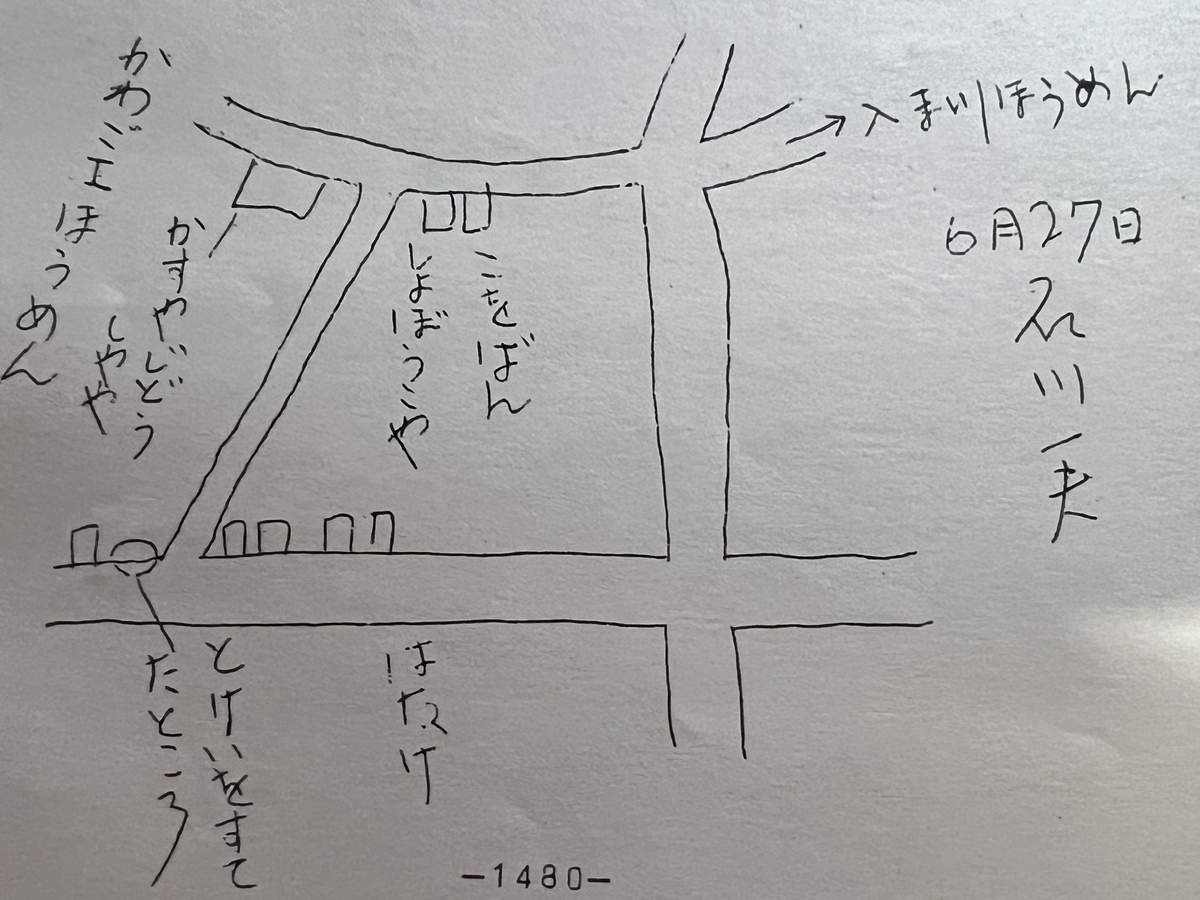 入まがほうめん
6月27日
石川一夫
かわごエほうめん
かすやじどう
しやや
こをばん
しよぼうこや
とけいをすて
たところ
はたけ
-1480-